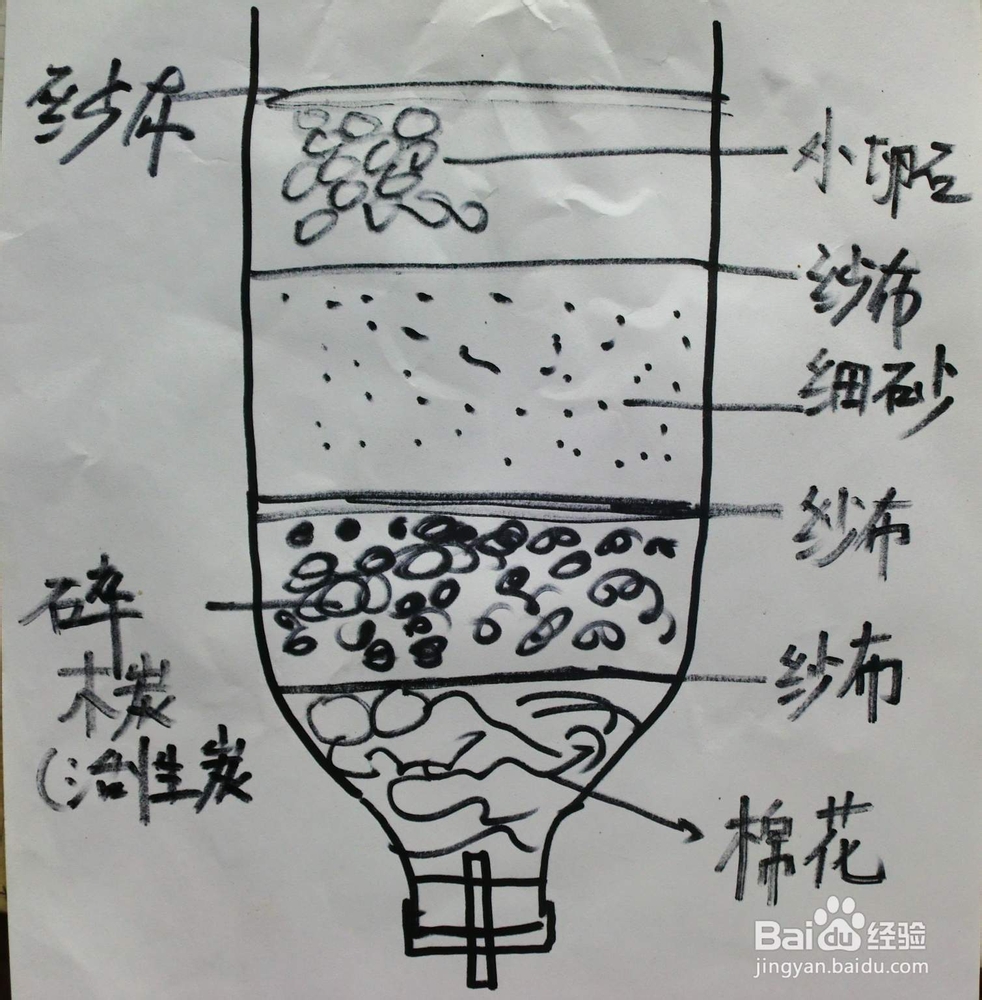 纱布
小卵石
纱布
细砂
纱布
碎
木炭
(活性炭
纱布
棉花
Baidu经验
jingyan.baidu.com